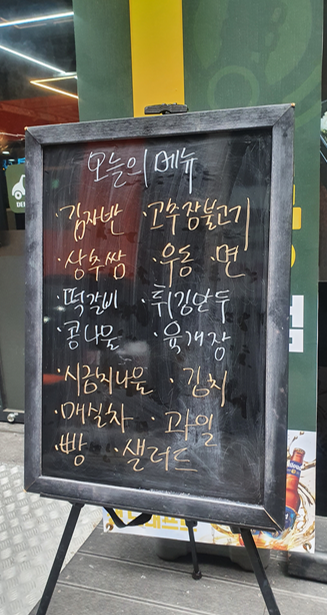 오늘의 메뉴
·김자반 ·고추장불고기
·상추쌈 ·우동 ·면
·떡갈비 ·튀김만두
·콩나물 ·육개장
·시금치나물 ·김치
·매실차 ·과일
·빵 ·샐러드